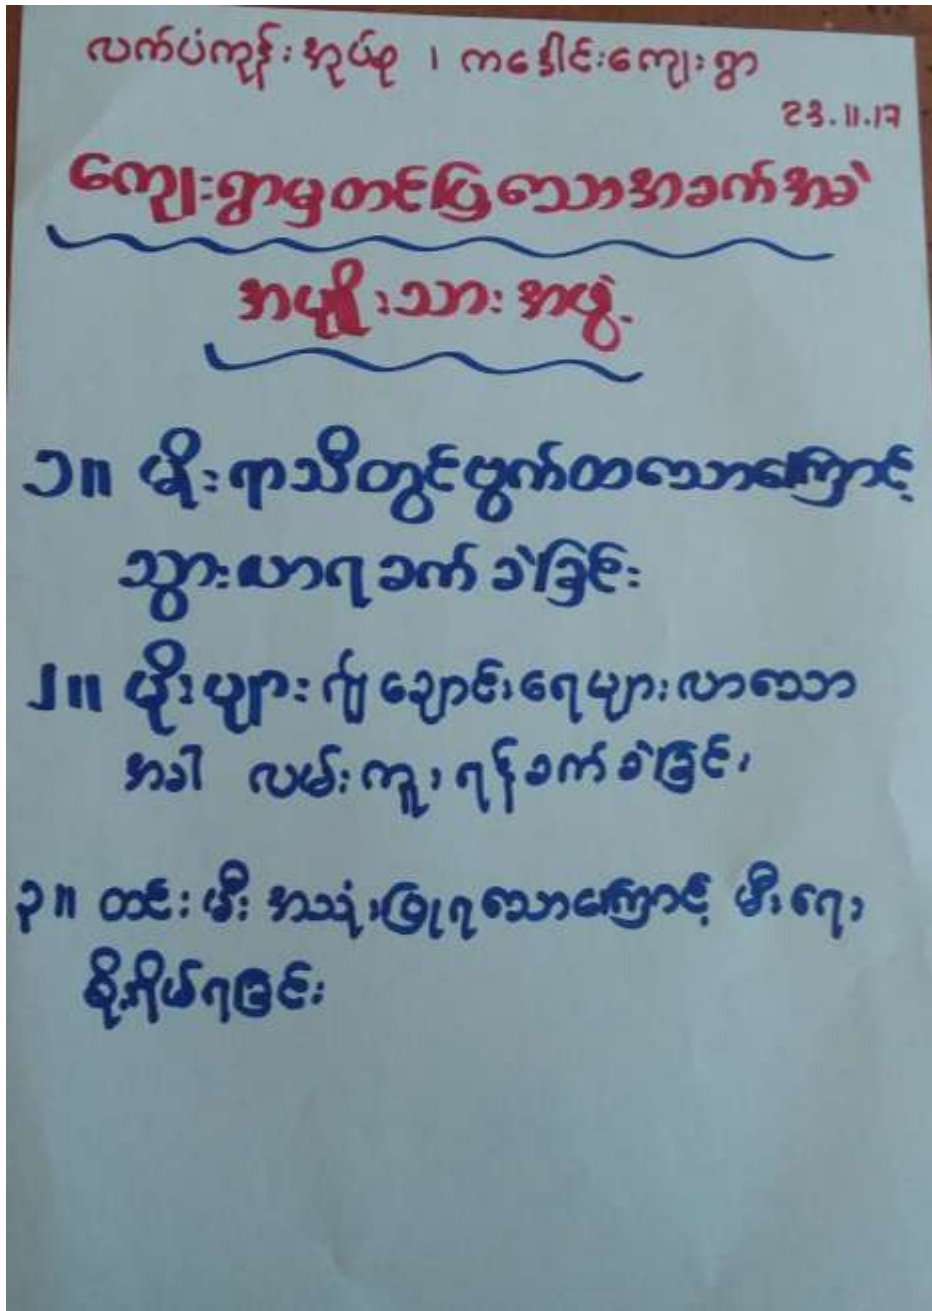 လက်ပံကုန်းအုပ်စု ၊ ကဒေါင်းကျေးရွာ
23.11.17
ကျေးရွာမှတင်ပြသောအခက်အခဲ
အမျိုးသားအဖွဲ့
၁။ မိုးရာသီတွင်ဗွက်ထသောကြောင့်
သွားလာရခက်ခဲခြင်း
၂။ မိုးများ၍ချောင်းရေများလာသော
အခါ လမ်းကူးရန်ခက်ခဲခြင်း
၃။ ထင်းမီးအသုံးပြုရသောကြောင့် မီးရေး
စိုးရိမ်ရခြင်း